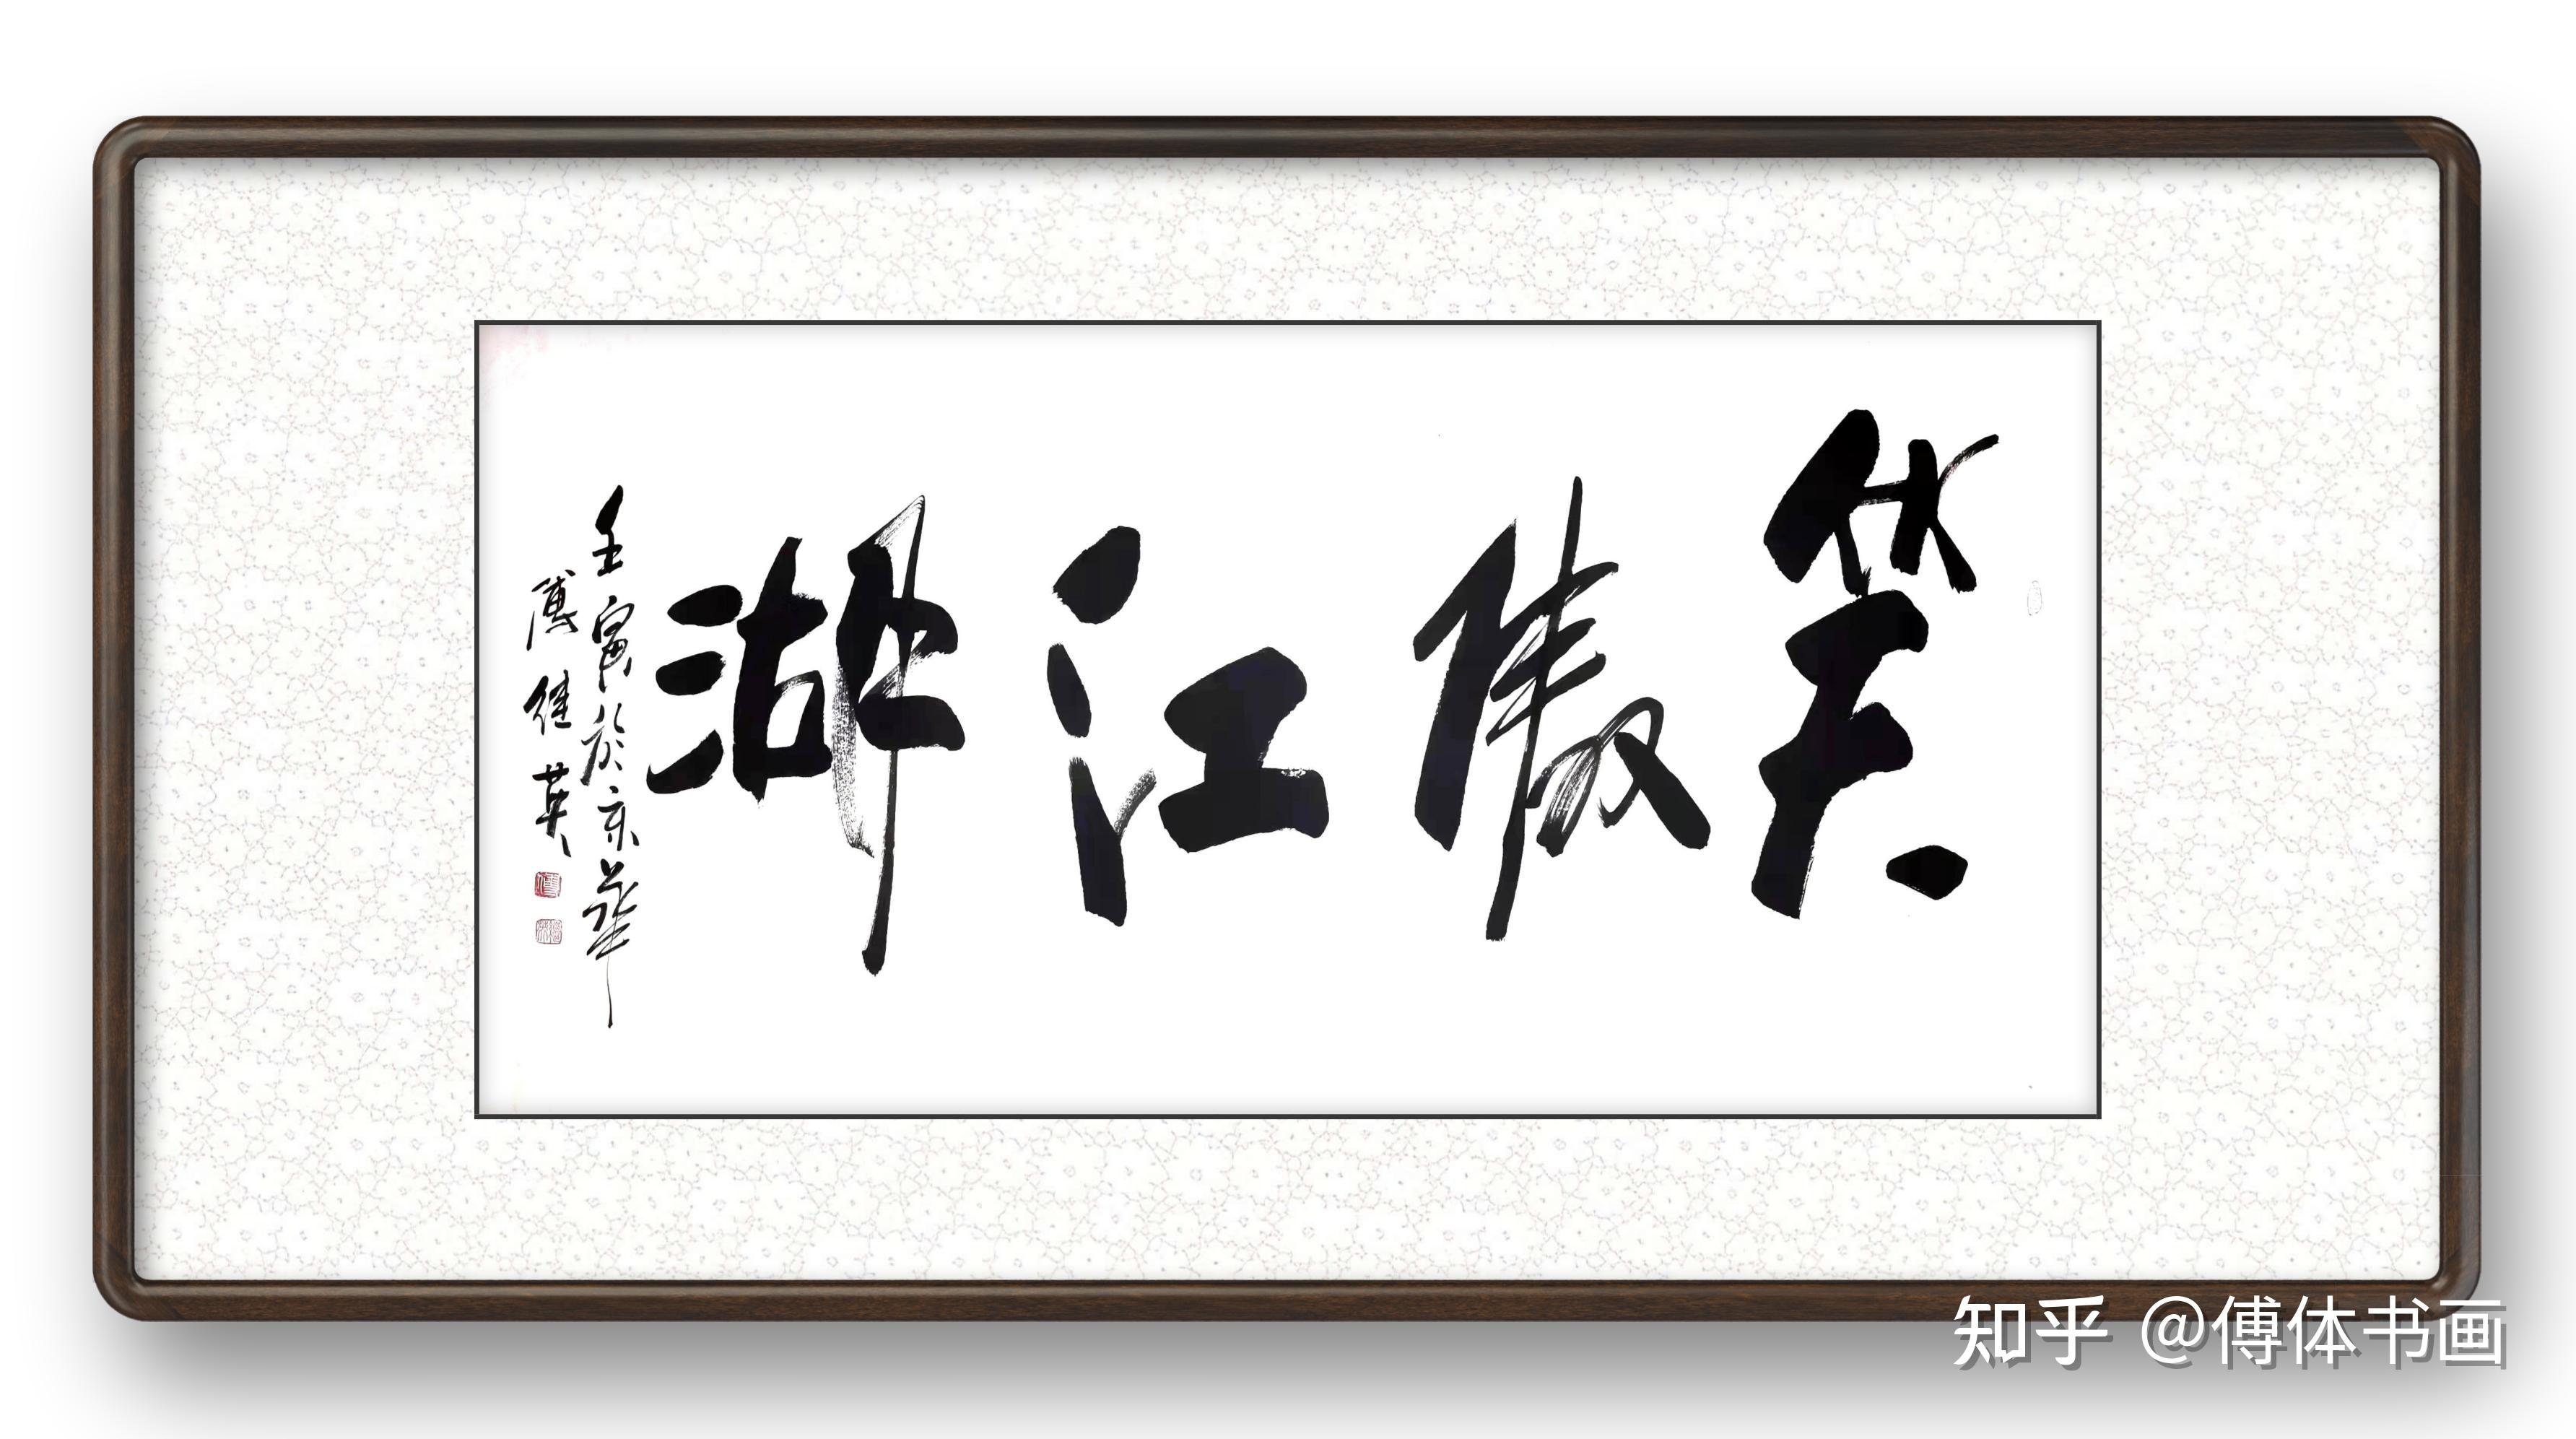 笑傲江湖
壬寅於京華
傅继英
知乎 @傅体书画